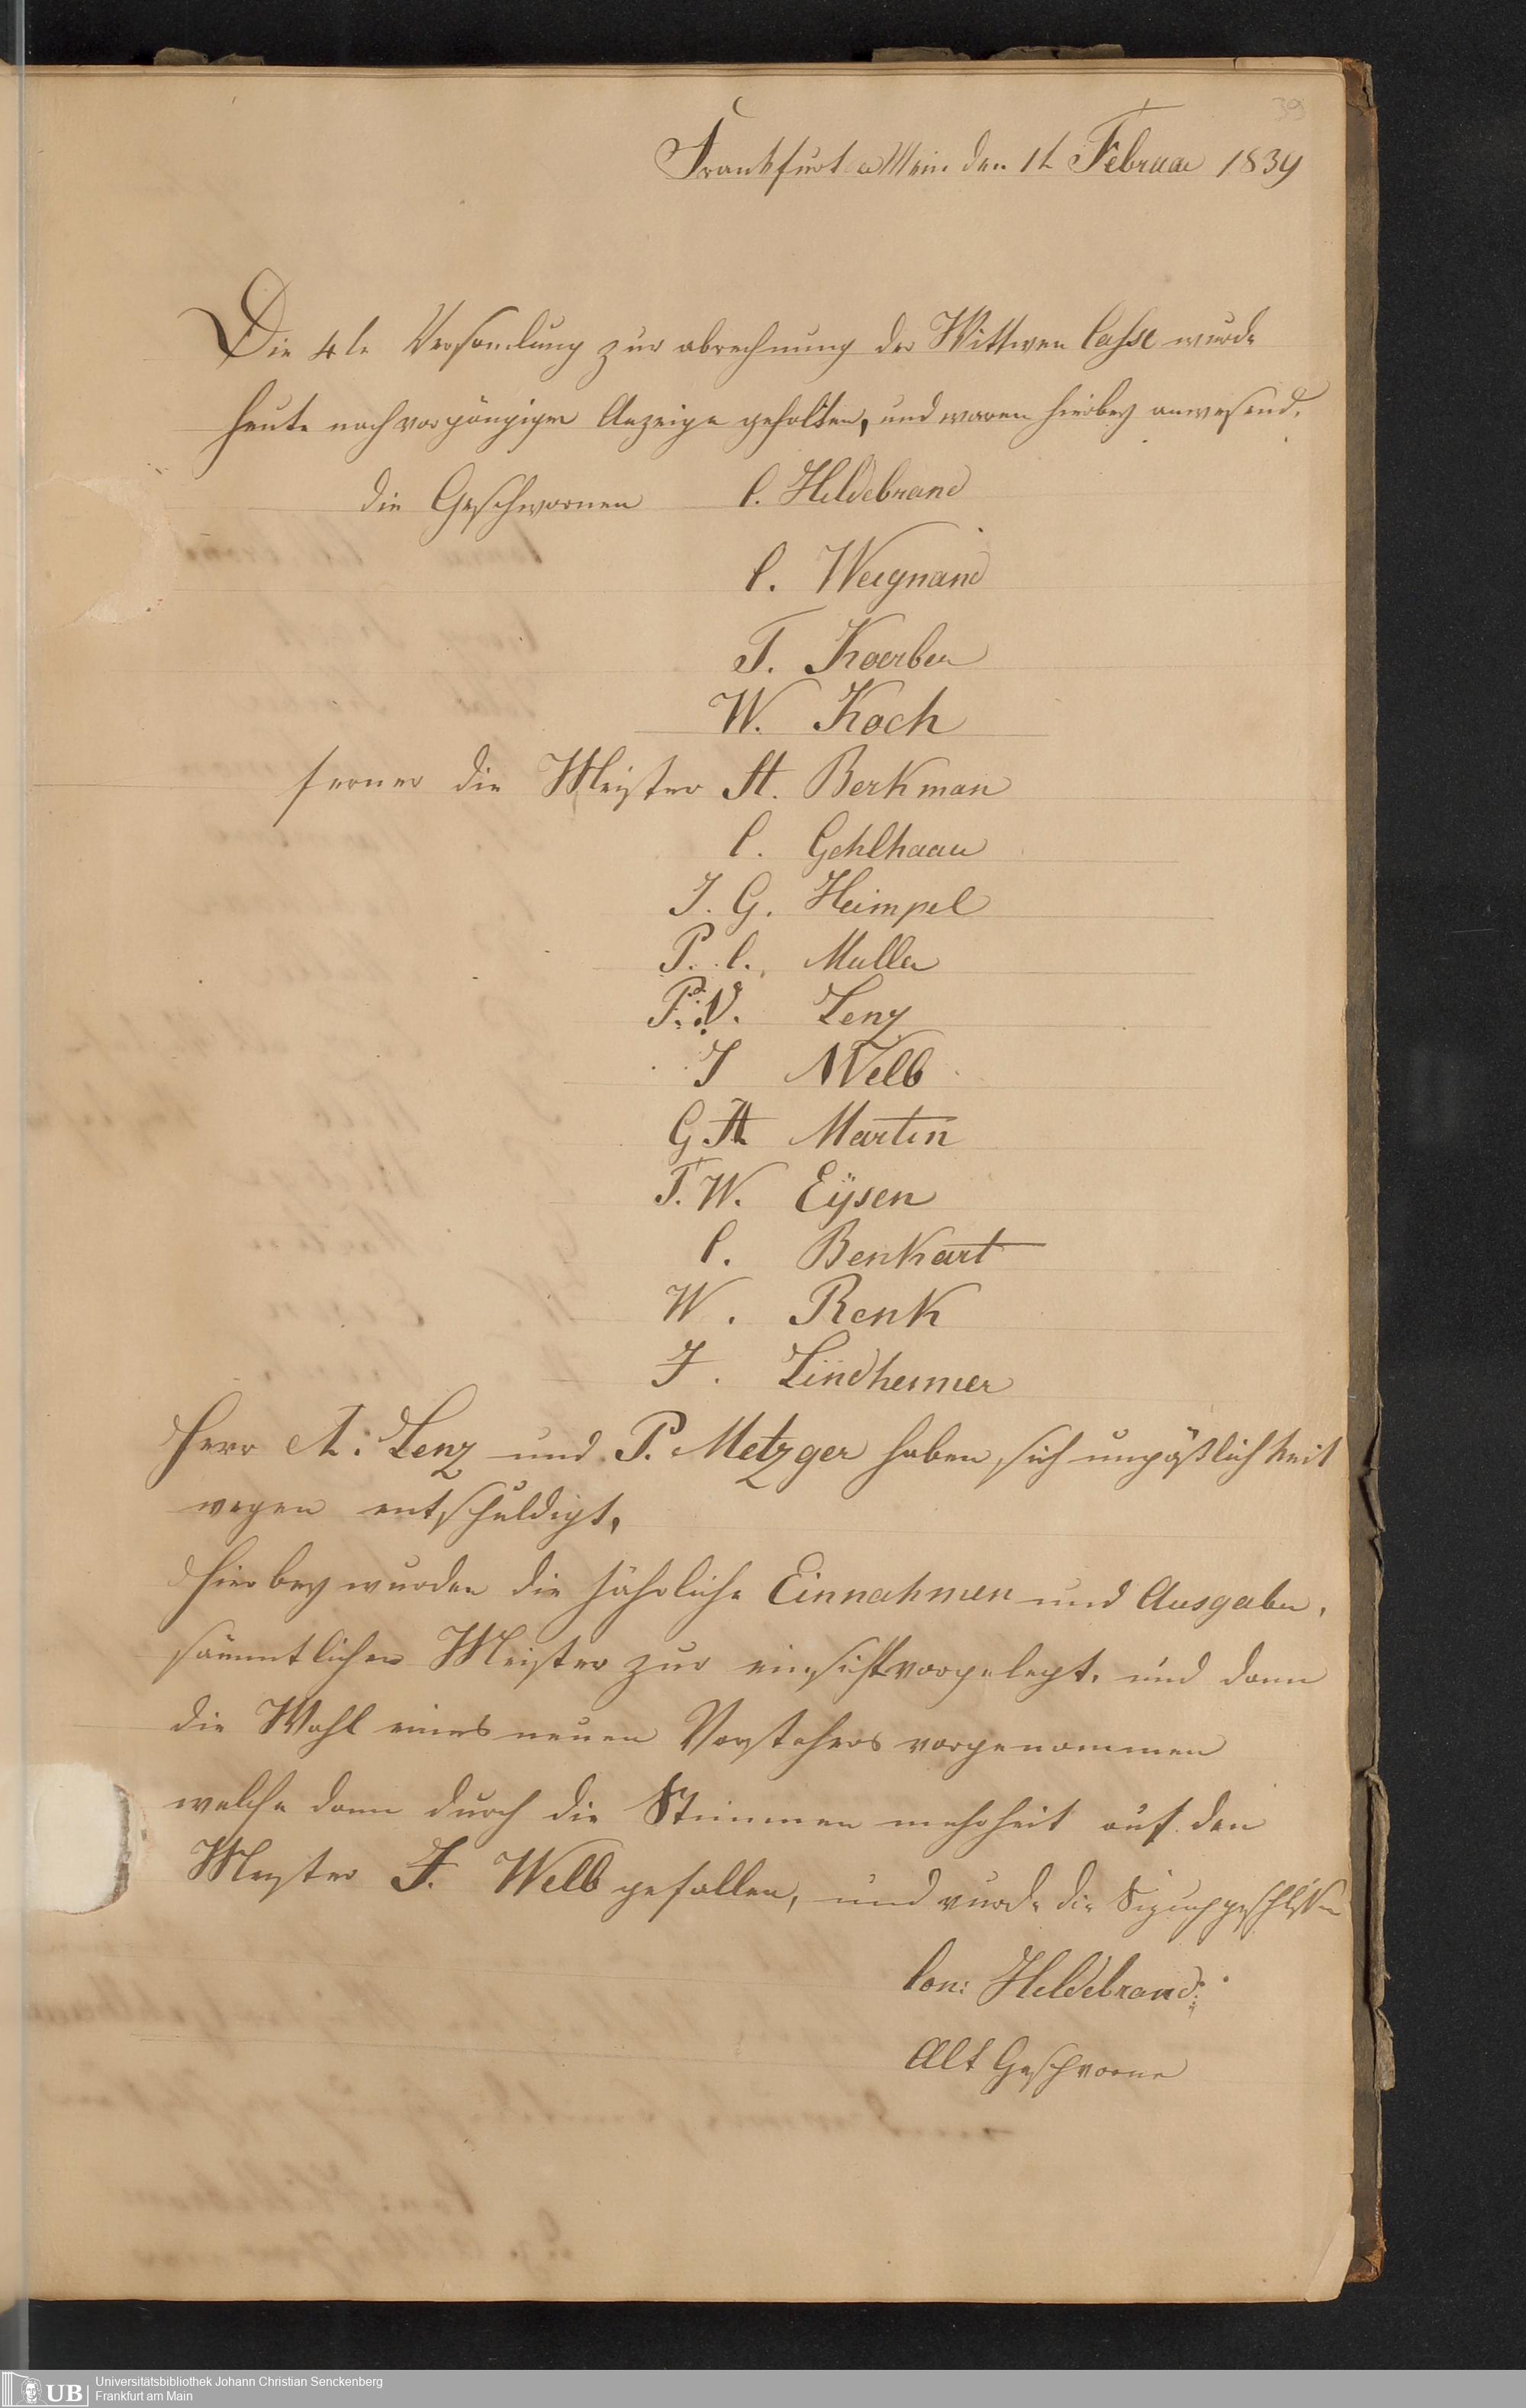 39
Frankfurt a Mein den 11 Februar 1839
Die 4te Versamlung zur abrechnung der Wittwen Casse wurde
heute nach vorgängiger Anzeige gehalten, und waren hierbey anwesend.
die Geschwornen C. Hildebrand
C. Weignand
F. Koerber
W. Koch
ferner die Meister A. Berkman
C. Gehlhaar
J. G. Heimpel
P. C. Muller
P. V. Lenz
J Welb
G. A Martin
F. W. Eÿsen
C. Benkart
W. Renk
J. Lindheimer
Herr A. Lenz und P. Metzger haben sich unpäßlichkeit
wegen entschuldigt,
Hierbey wurden die jährliche Einnahmen und Ausgaben,
sämmtlicher Meister zur einsicht vorgelegt, und dann
die Wahl eines neuen Vorstehers vorgenommen
welche dann durch die Stimmen mehrheit auf den
Meister J. Welb gefallen, und wurde die Sizung geschlossen
Con: Hildebrand
Alt Geschworne
UB Universitätsbibliothek Johann Christian Senckenberg
Frankfurt am Main